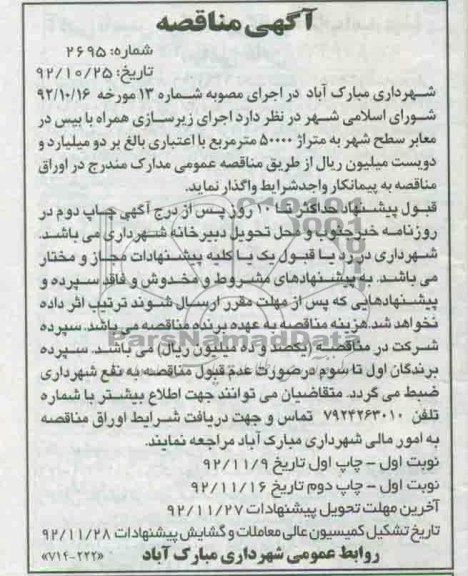 آگهی مناقصه
شماره: ۲۶۹۵
تاریخ: ۹۲/۱۰/۲۵
شهرداری مبارک آباد در اجرای مصوبه شماره ۱۳ مورخه ۹۲/۱۰/۱۶
شورای اسلامی شهر در نظر دارد اجرای زیرسازی همراه با بیس در
معابر سطح شهر به متراژ ۵۰۰۰۰ مترمربع با اعتباری بالغ بر دو میلیارد و
دویست میلیون ریال از طریق مناقصه عمومی مدارک مندرج در اوراق
مناقصه به پیمانکار واجدشرایط واگذار نماید.
قبول پیشنهاد حداکثر تا ۱۰ روز پس از درج آگهی چاپ دوم در
روزنامه خبرجنوب و محل تحویل دبیرخانه شهرداری می باشد.
شهرداری در رد یا قبول یک یا کلیه پیشنهادات مجاز و مختار
می باشد. به پیشنهادهای مشروط و مخدوش و فاقد سپرده و
پیشنهادهایی که پس از مهلت مقرر ارسال شوند ترتیب اثر داده
نخواهد شد. هزینه مناقصه به عهده برنده مناقصه می باشد. سپرده
شرکت در مناقصه (یکصد و ده میلیون ریال) می باشد. سپرده
برندگان اول تا سوم درصورت عدم قبول مناقصه به نفع شهرداری
ضبط می گردد. متقاضیان می توانند جهت اطلاع بیشتر با شماره
تلفن ۷۹۲۴۲۶۳۰۱۰ تماس و جهت دریافت شرایط اوراق مناقصه
به امور مالی شهرداری مبارک آباد مراجعه نمایند.
نوبت اول - چاپ اول تاریخ ۹۲/۱۱/۹
نوبت اول - چاپ دوم تاریخ ۹۲/۱۱/۱۶
آخرین مهلت تحویل پیشنهادات ۹۲/۱۱/۲۷
تاریخ تشکیل کمیسیون عالی معاملات و گشایش پیشنهادات ۹۲/۱۱/۲۸
روابط عمومی شهرداری مبارک آباد «۷۱۴-۲۲۲»
ParsNamadData